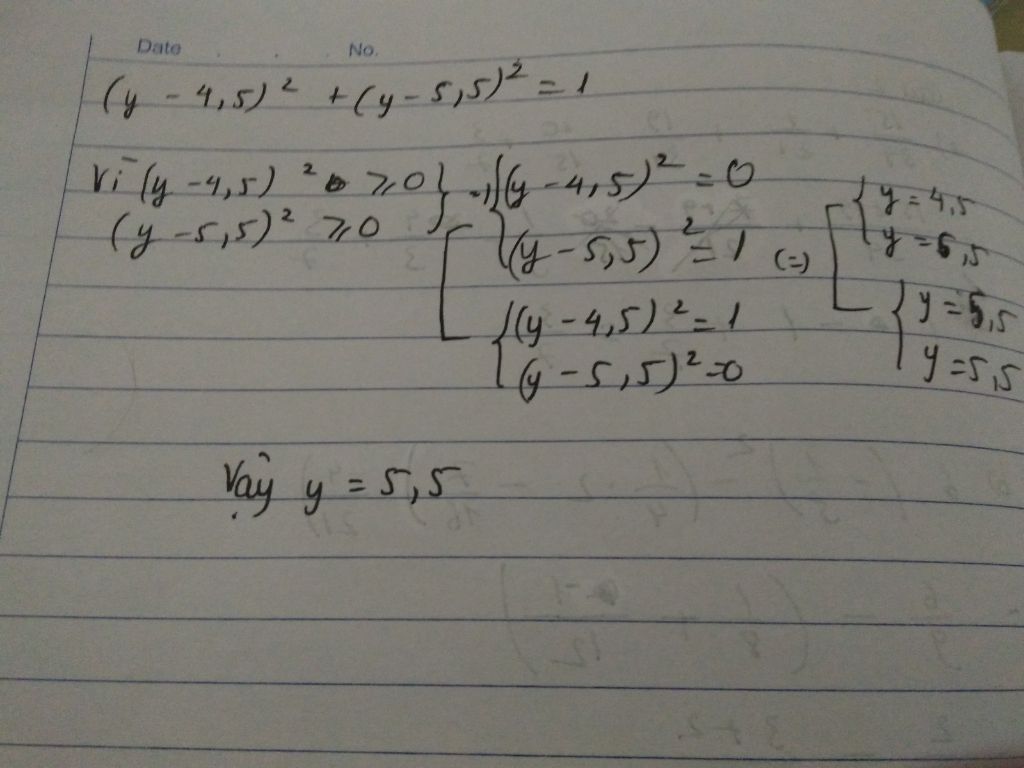 Date . . . No.
(y - 4,5)² + (y - 5,5)² = 1
Vì (y - 4,5)² ⩾ 0 } => { (y - 4,5)² = 0
(y - 5,5)² ⩾ 0
(y - 5,5)² = 1 (=) [ { y = 4,5
y = 6,5
[ { (y - 4,5)² = 1
(y - 5,5)² = 0
{ y = 5,5
y = 5,5
Vậy y = 5,5